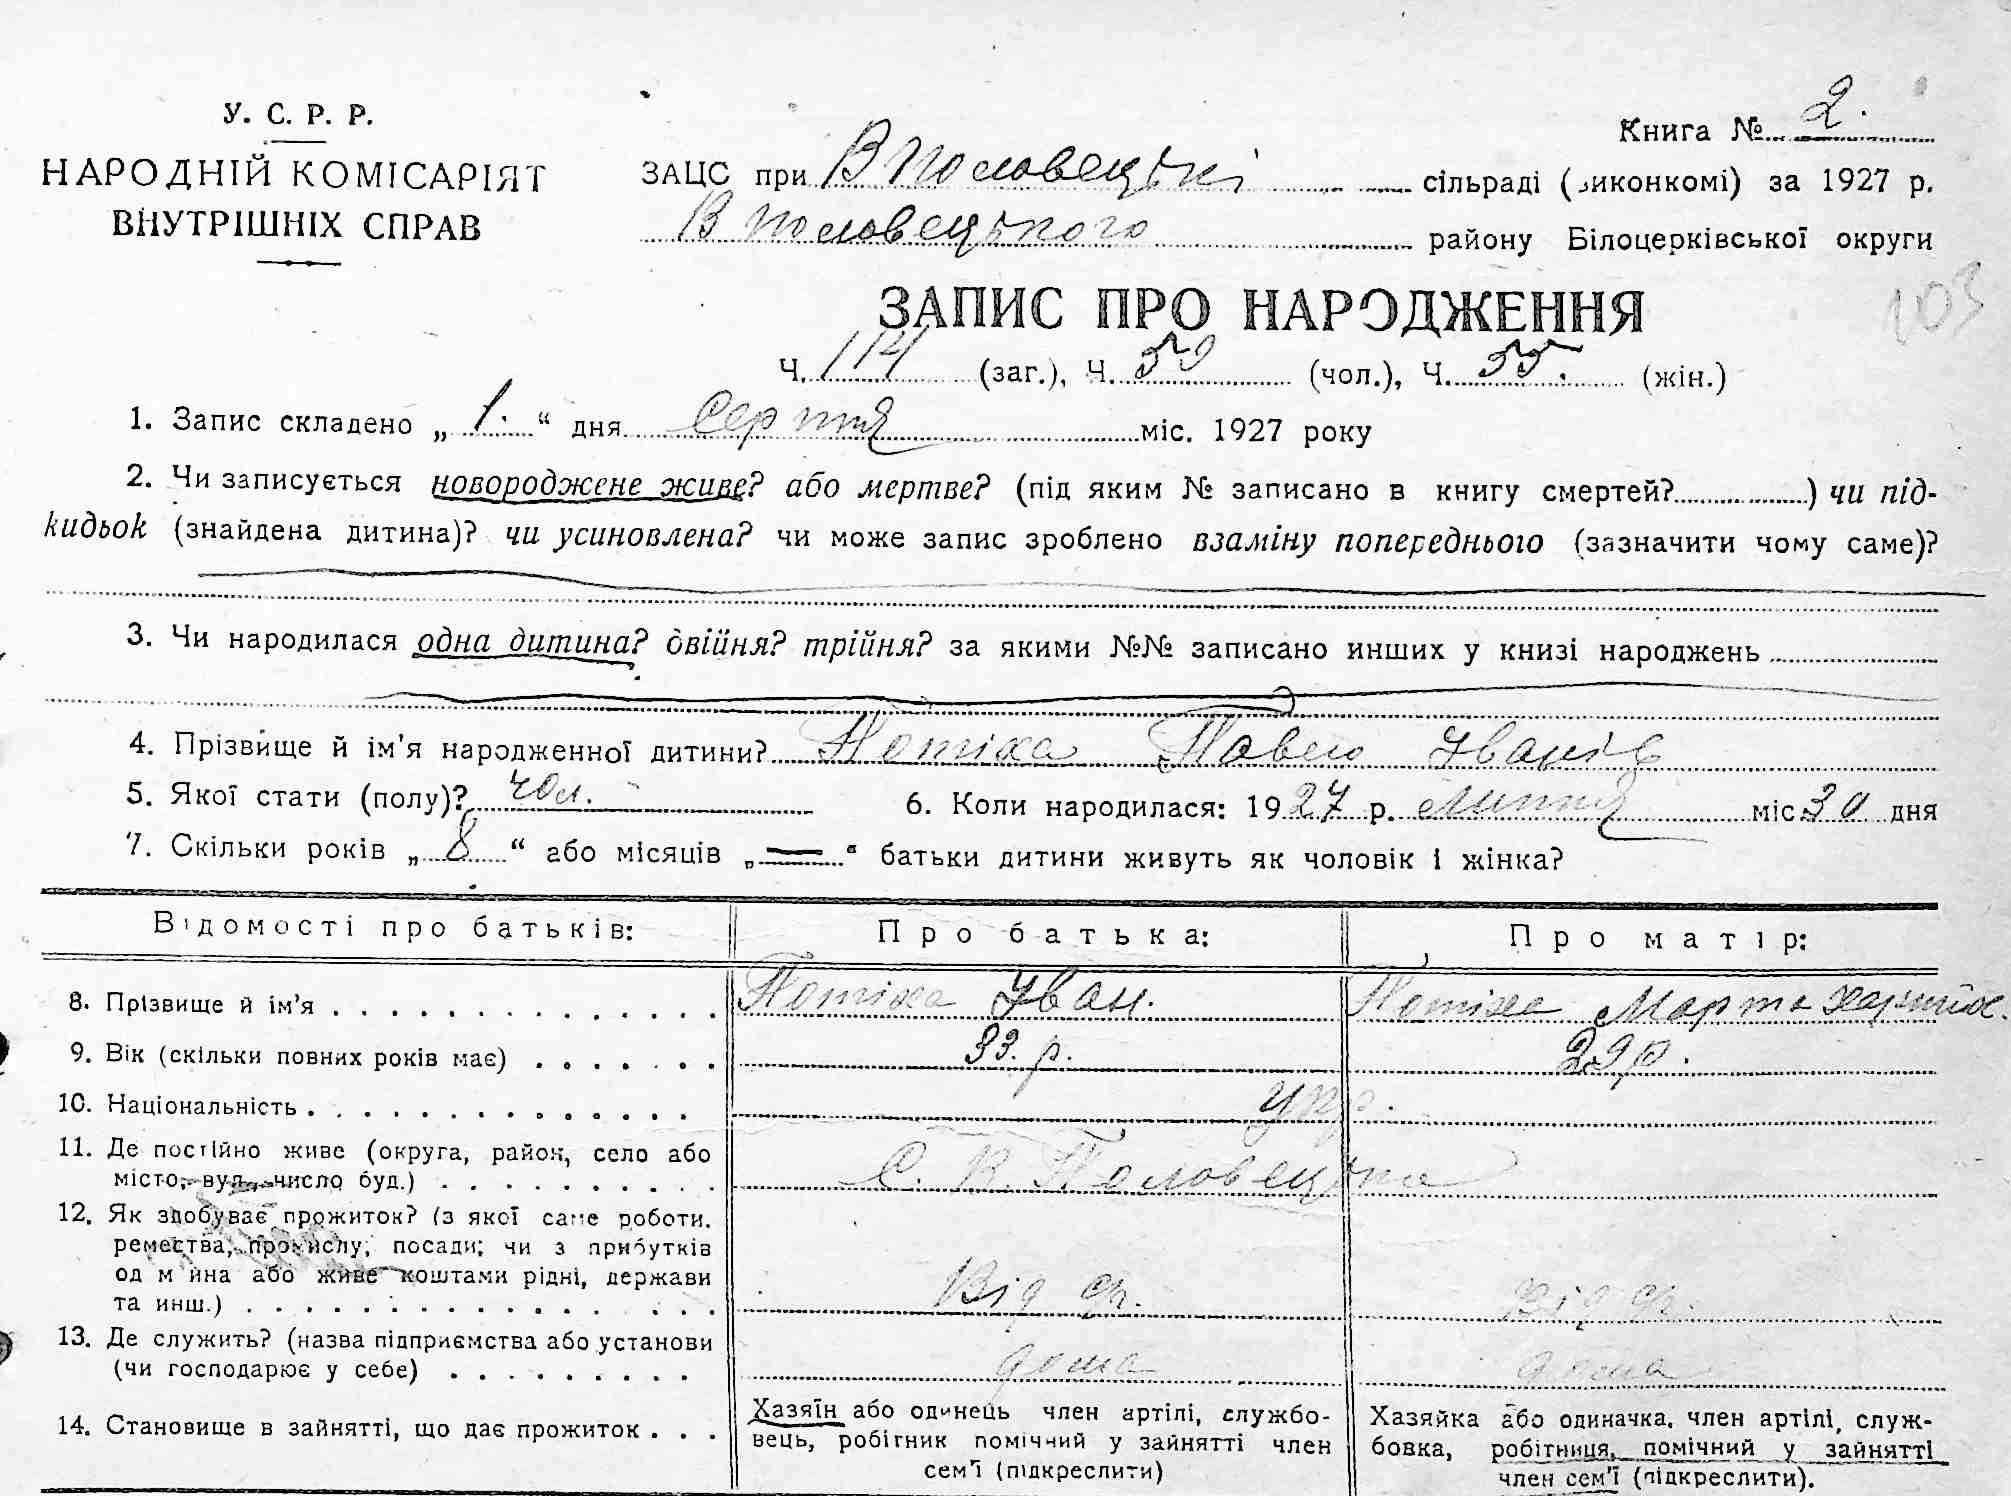 У. С. Р. Р.
НАРОДНІЙ КОМІСАРІЯТ
ВНУТРІШНІХ СПРАВ
Книга № 2.
ЗАЦС при В Половецькі сільраді (виконкомі) за 1927 р.
В Половецького району Білоцерківської округи
103
ЗАПИС ПРО НАРОДЖЕННЯ
Ч. 114 (заг.), Ч. 59 (чол.), Ч. 55. (жін.)
1. Запис складено „ 1. “ дня Серпня міс. 1927 року
2. Чи записується новороджене живе? або мертве? (під яким № записано в книгу смертей? ) чи під-
кидьок (знайдена дитина)? чи усиновлена? чи може запис зроблено взаміну попереднього (зазначити чому саме)?
3. Чи народилася одна дитина? двійня? трійня? за якими №№ записано инших у книзі народжень
4. Прізвище й ім'я народженної дитини? Потіха Павло Іванів
5. Якої стати (полу)? чол. 6. Коли народилася: 1927 р. липня міс 30 дня
7. Скільки років „ 8 “ або місяців „ — “ батьки дитини живуть як чоловік і жінка?
Відомості про батьків: Про батька: Про матір:
8. Прізвище й ім'я Потіха Іван. Потіха Марта
9. Вік (скільки повних років має) 33. р. 29 р.
10. Національність укр.
11. Де постійно живе (округа, район, село або
місто, вул., число буд.) С. В. Половецька
12. Як здобуває прожиток? (з якої саме роботи,
ремества, промислу, посади; чи з прибутків
од майна або живе коштами рідні, держави
та инш.) Від гр. Від гр.
13. Де служить? (назва підприємства або установи
(чи господарює у себе) дома дома
14. Становище в зайнятті, що дає прожиток
Хазяїн або одинець член артілі, службо-
вець, робітник помічний у зайнятті член
сем'ї (підкреслити)
Хазяйка або одиначка, член артілі, служ-
бовка, робітниця, помічний у зайнятті
член сем'ї (підкреслити).